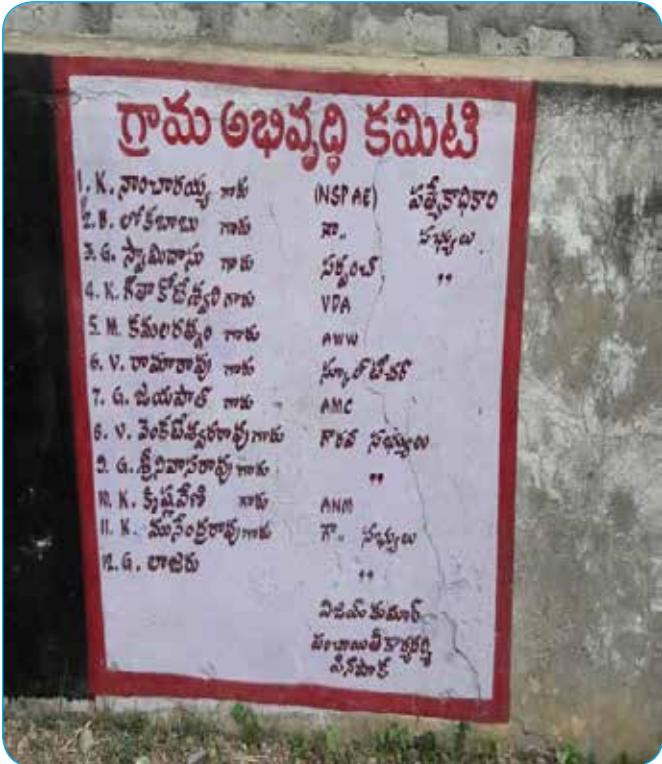 గ్రామ అభివృద్ధి కమిటి
1. K. నాంచారయ్య గారు (NSPAE) పత్యేకాధికారి
2. B. లోకబాబు గారు గౌ.. సభ్యులు
3. G. స్వామిదాసు గారు సర్పంచ్ ,,
4. K. కోటేశ్వరి గారు VDA
5. M. కమలరత్నం గారు AWW
6. V. రామారావు గారు స్కూల్ టీచర్
7. G. జయపాల్ గారు AMC
8. V. వెంకటేశ్వరరావు గారు గౌరవ సభ్యులు
9. G. శ్రీనివాసరావు గారు ,,
10. K. కృష్ణవేణి గారు ANM
11. K. గారు గౌ.. సభ్యులు
12. G. లాజరు ,,
విజయ్ కుమార్
పంచాయితీ కార్యదర్శి
పినపాక